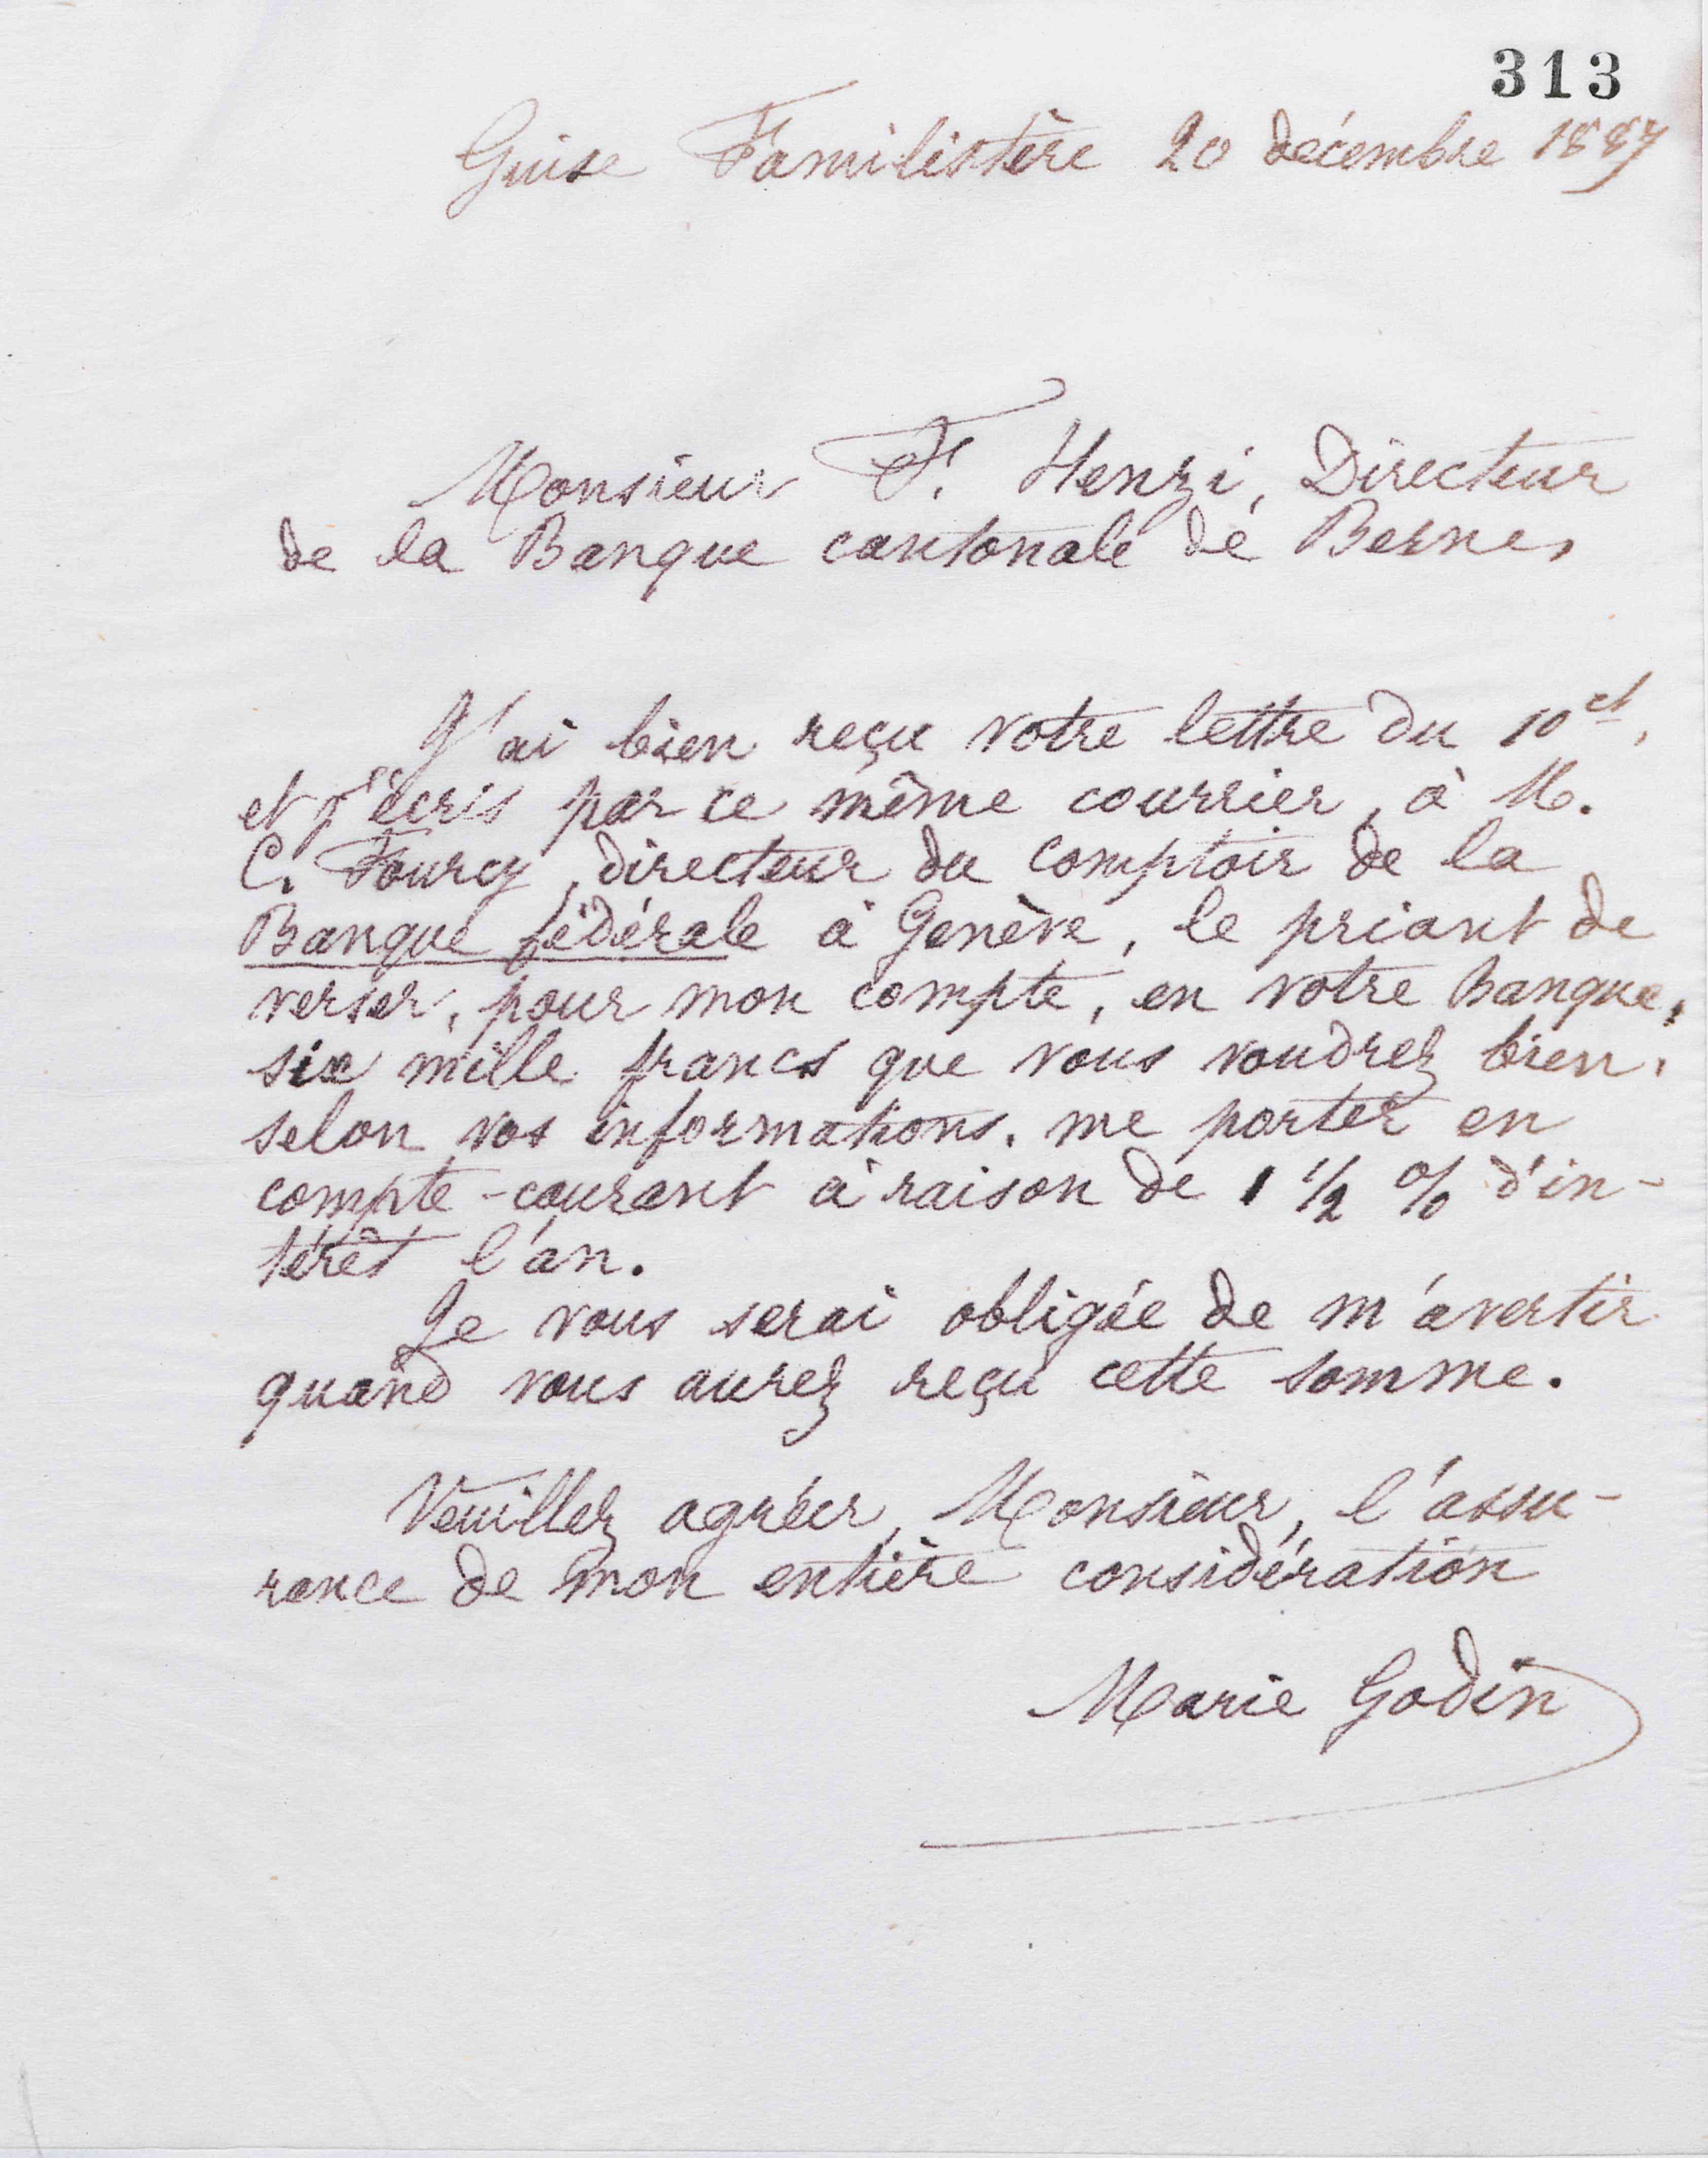 313
Guise Familistère 20 décembre 1887
Monsieur F. Henzi, Directeur
de la Banque cantonale de Berne,
J'ai bien reçu votre lettre du 10 ct,
et j'écris par ce même courrier, à M.
C. Fourcy, directeur du comptoir de la
Banque fédérale à Genève, le priant de
verser, pour mon compte, en votre Banque,
six mille francs que vous voudrez bien,
selon vos informations, me porter en
compte-courant à raison de 1 ½ % d'in-
térêt l'an.
Je vous serai obligée de m'avertir
quand vous aurez reçu cette somme.
Veuillez agréer, Monsieur, l'assu-
rance de mon entière considération
Marie Godin